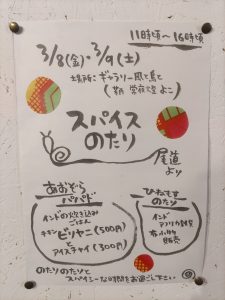 11時頃〜16時頃
3/8(金)・3/9(土)
場所: ギャラリー風と鳥と
よこ)
スパイス
のたり
尾道
より
あおぞら
パパド
インドの炊き込み
ごはん
チキンビリヤニ(500円)
と
アイスチャイ(300円)
ひねもす
のたり
インド
アフリカ雑貨
布小物
販売
のたりのたりと
スパイシーな時間をお過ごし下さい